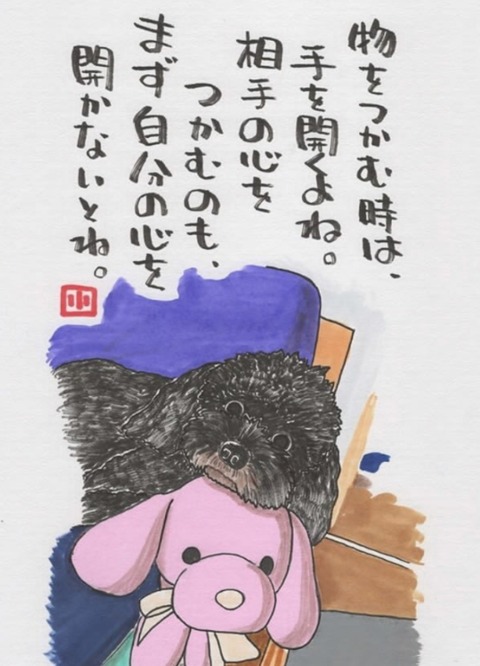 物をつかむ時は、
手を開くよね。
相手の心を
つかむのも、
まず自分の心を
開かないとね。
小